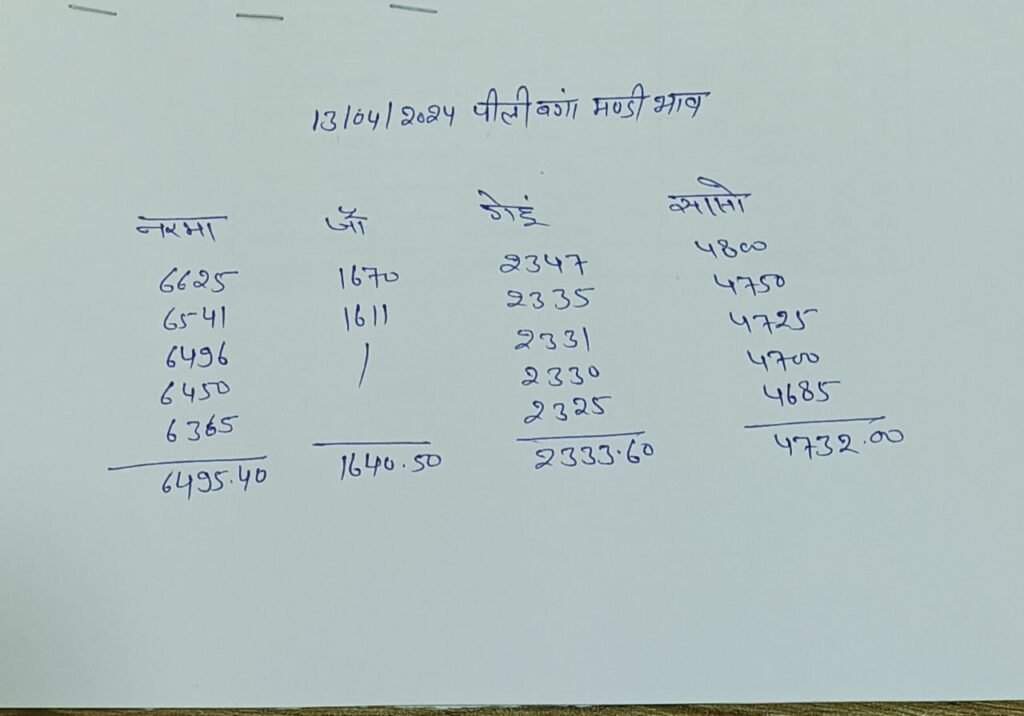 13/04/2024 पीलीबंगा मण्डी भाव
नरमा जौ गेहूं सरसों
6625 1670 2347 4800
6541 1611 2335 4750
6496 / 2331 4725
6450 2330 4700
6365 2325 4685
6495.40 1640.50 2333.60 4732.00